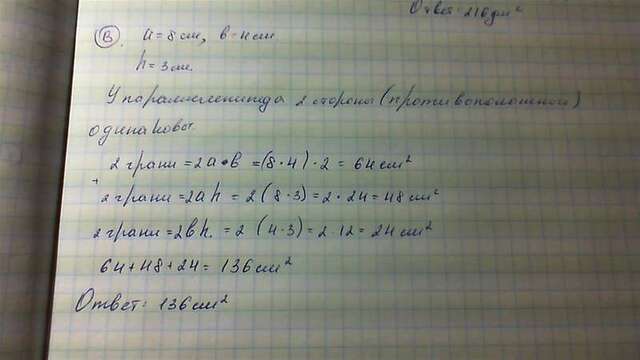 Ответ: 216 дм²
В. a = 8 см, b = 4 см
h = 3 см.
У параллелепипеда 2 стороны (противоположной)
одинаковы
2 грани = 2a•b = (8·4)·2 = 64 см²
+
2 грани = 2ah = 2(8·3) = 2·24 = 48 см²
2 грани = 2bh. = 2 (4·3) = 2·12 = 24 см²
64+48+24 = 136 см²
Ответ: 136 см²